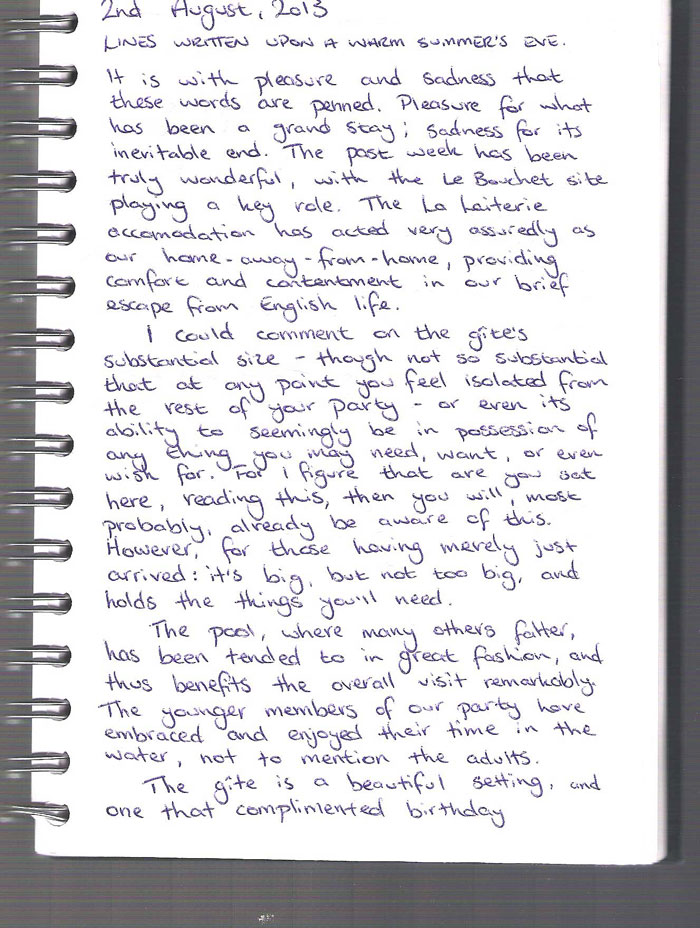 2nd August, 2013
LINES WRITTEN UPON A WARM SUMMER'S EVE.
It is with pleasure and sadness that
these words are penned. Pleasure for what
has been a grand stay; sadness for its
inevitable end. The past week has been
truly wonderful, with the Le Bouchet site
playing a key role. The La Laiterie
accomodation has acted very assuredly as
our home-away-from-home, providing
comfort and contentment in our brief
escape from English life.
I could comment on the gîte's
substantial size - though not so substantial
that at any point you feel isolated from
the rest of your party - or even its
ability to seemingly be in possession of
any thing you may need, want, or even
wish for. For I figure that are you sat
here, reading this, then you will, most
probably, already be aware of this.
However, for those having merely just
arrived: it's big, but not too big, and
holds the things you'll need.
The pool, where many others falter,
has been tended to in great fashion, and
thus benefits the overall visit remarkably.
The younger members of our party have
embraced and enjoyed their time in the
water, not to mention the adults.
The gîte is a beautiful setting, and
one that complimented birthday